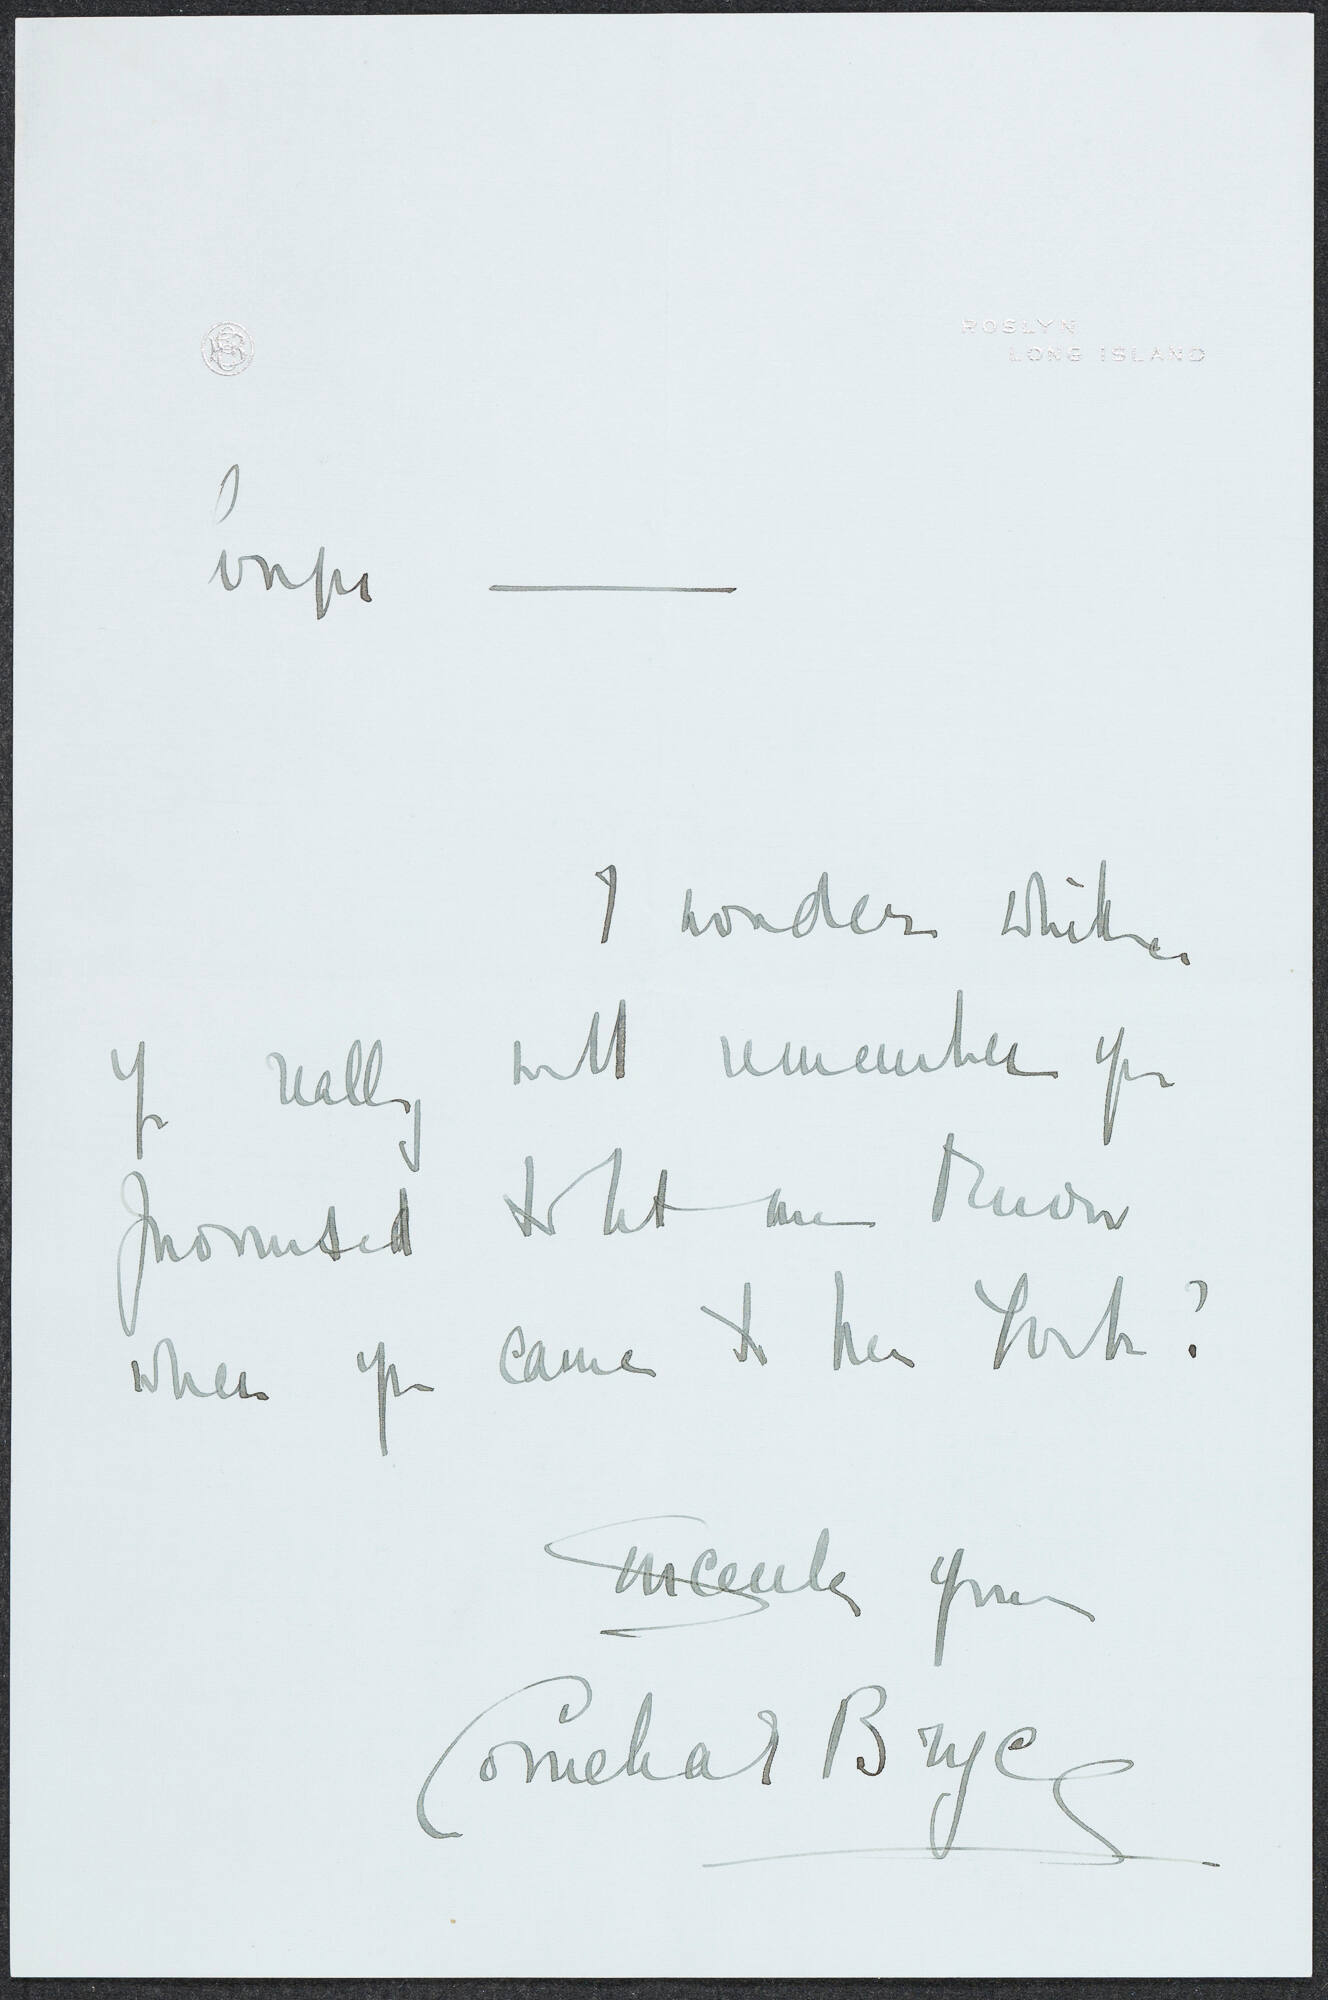 ROSLYN
LONG ISLAND
I wonder whether
you really will remember you
promised to let me know
when you came to New York?
Sincerely yours
Cornelia Bryce